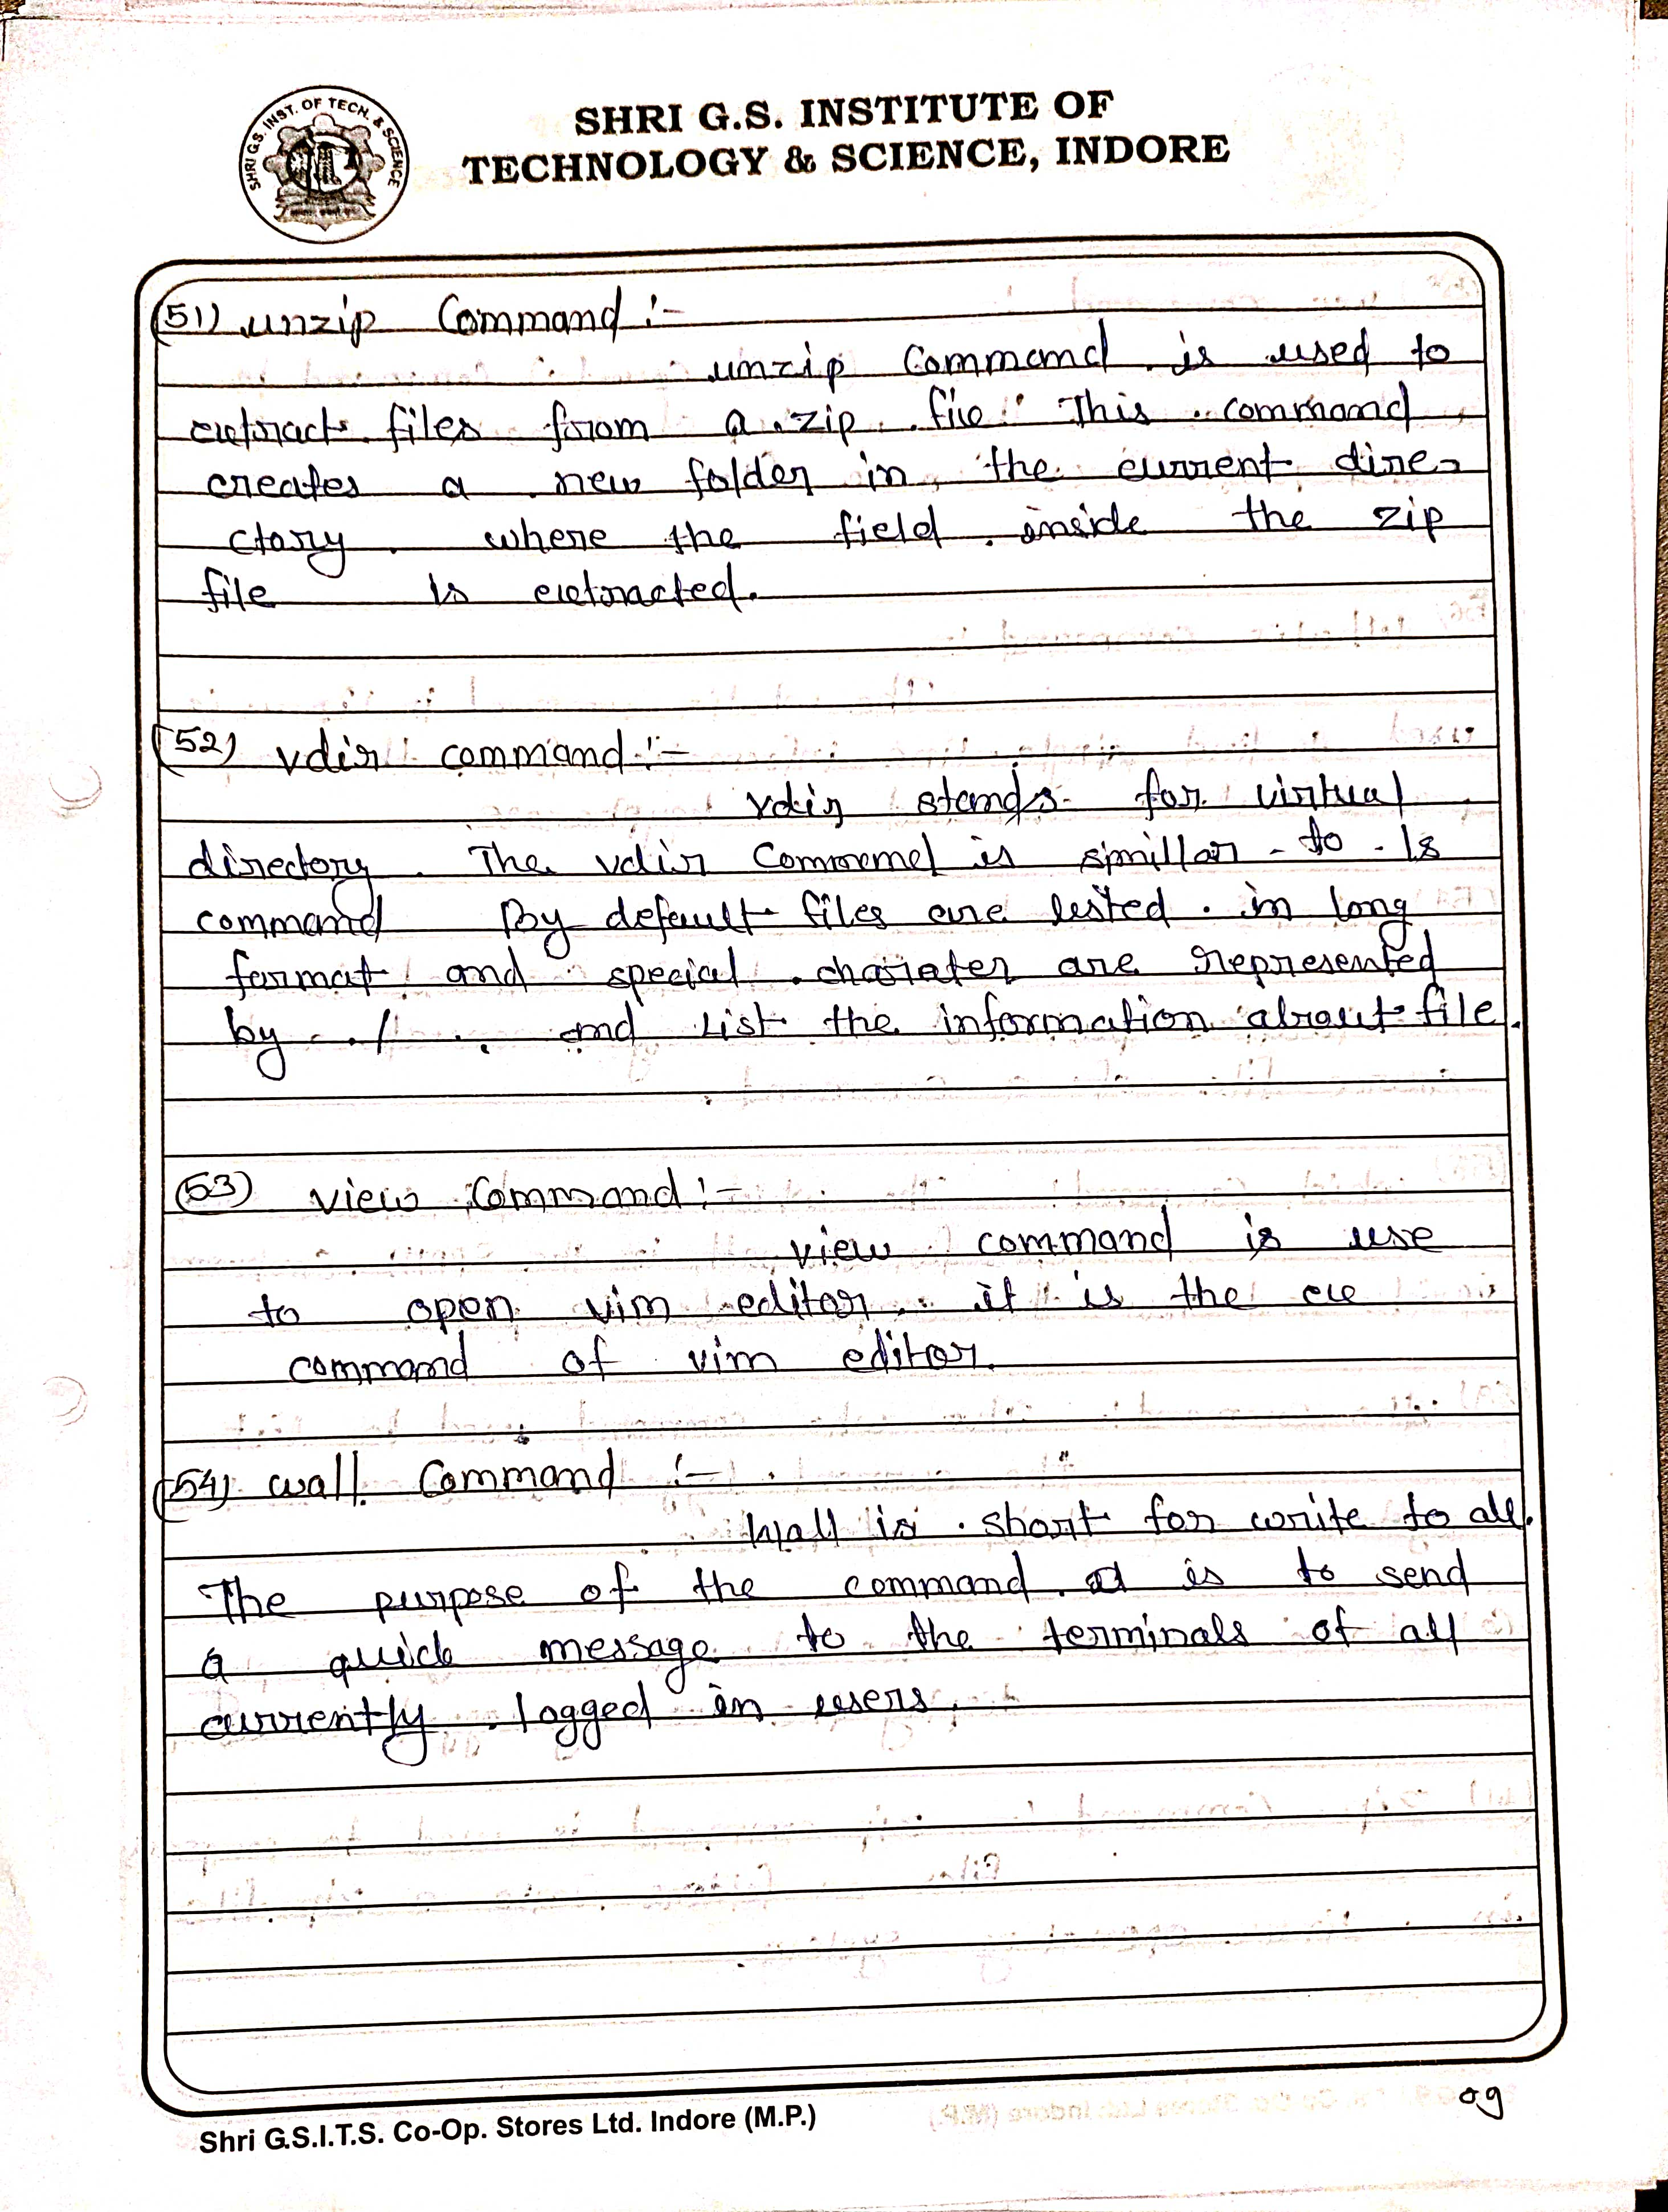 SHRI G.S. INST. OF TECH. & SCIENCE
SHRI G.S. INSTITUTE OF
TECHNOLOGY & SCIENCE, INDORE
(51) unzip Command :-
unzip Command is used to
extract files from a zip file. This command
creates a new folder in the current dire-
ctory where the field inside the zip
file is extracted.
(52) vdir command :-
vdir stands for virtual
directory. The vdir Command is simillar to ls
command By default files are listed in long
format and special charater are represented
by ./ and List the information about file.
(53) view Command :-
view command is use
to open vim editor. it is the ex
command of vim editor.
(54) wall Command :-
Wall is short for write to all.
The purpose of the command is to send
a quick message to the terminals of all
currently logged in users.
Shri G.S.I.T.S. Co-Op. Stores Ltd. Indore (M.P.)
09